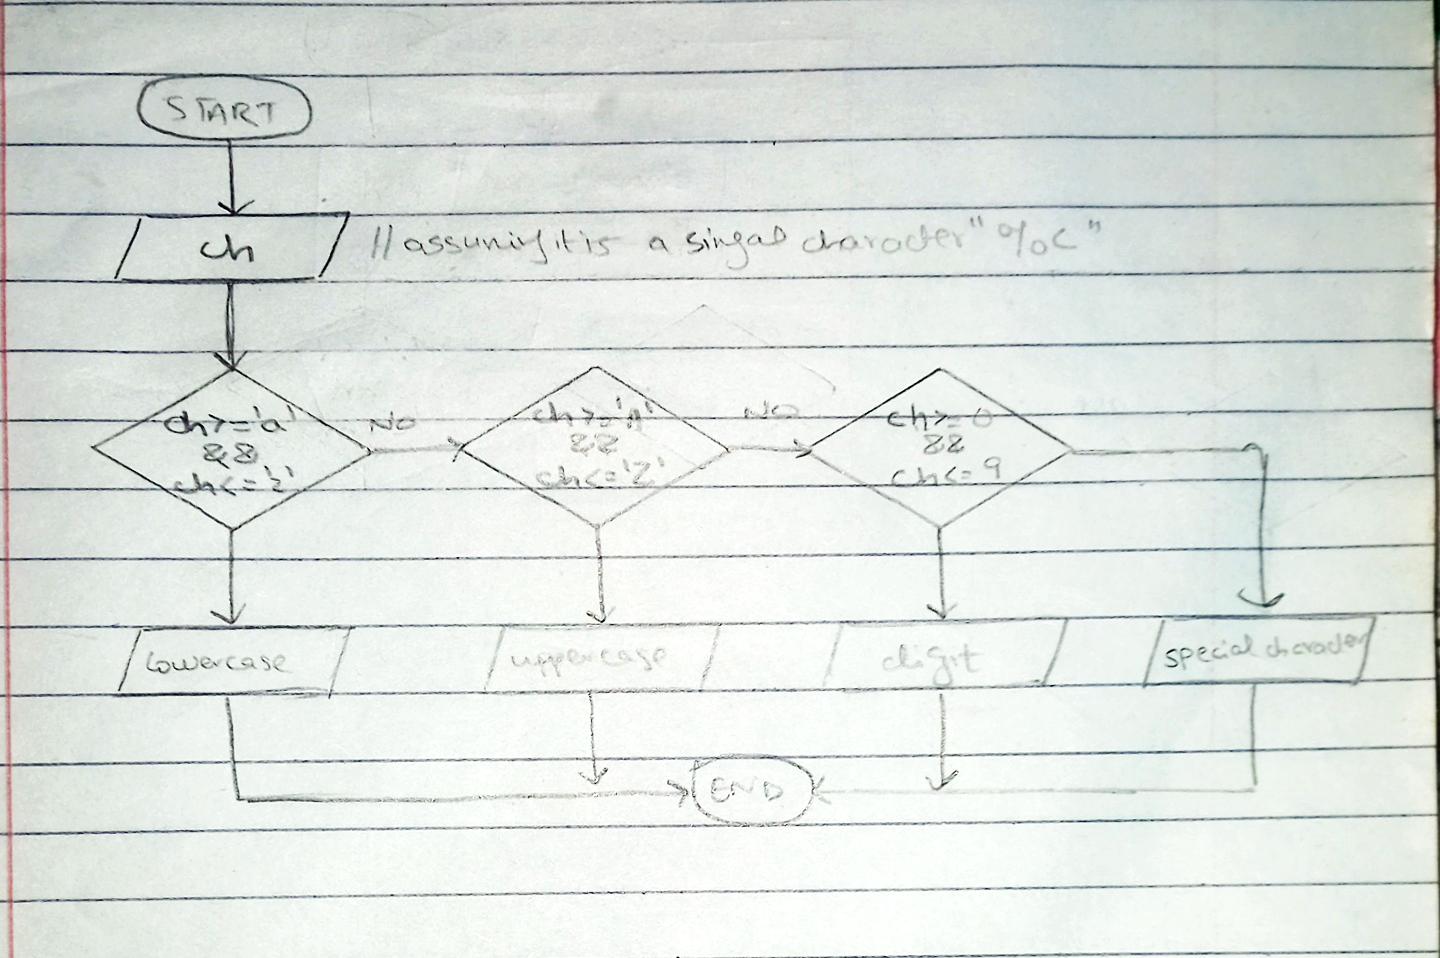 START
ch
//assuming it is a singal character "%c"
ch>='a'
&&
ch<='z'
NO
ch>='A'
&&
ch<='Z'
NO
ch>=0
&&
ch<=9
lowercase
uppercase
digit
special character
END